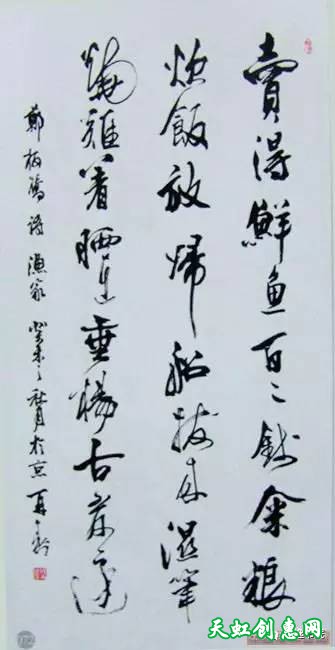 賣得鮮鱼百二錢籴粮
炊飯放歸船拔来濕葦
燒難着晒在垂楊古岸邊
鄭板橋詩 漁家 癸未之秋月於京
天虹创惠网